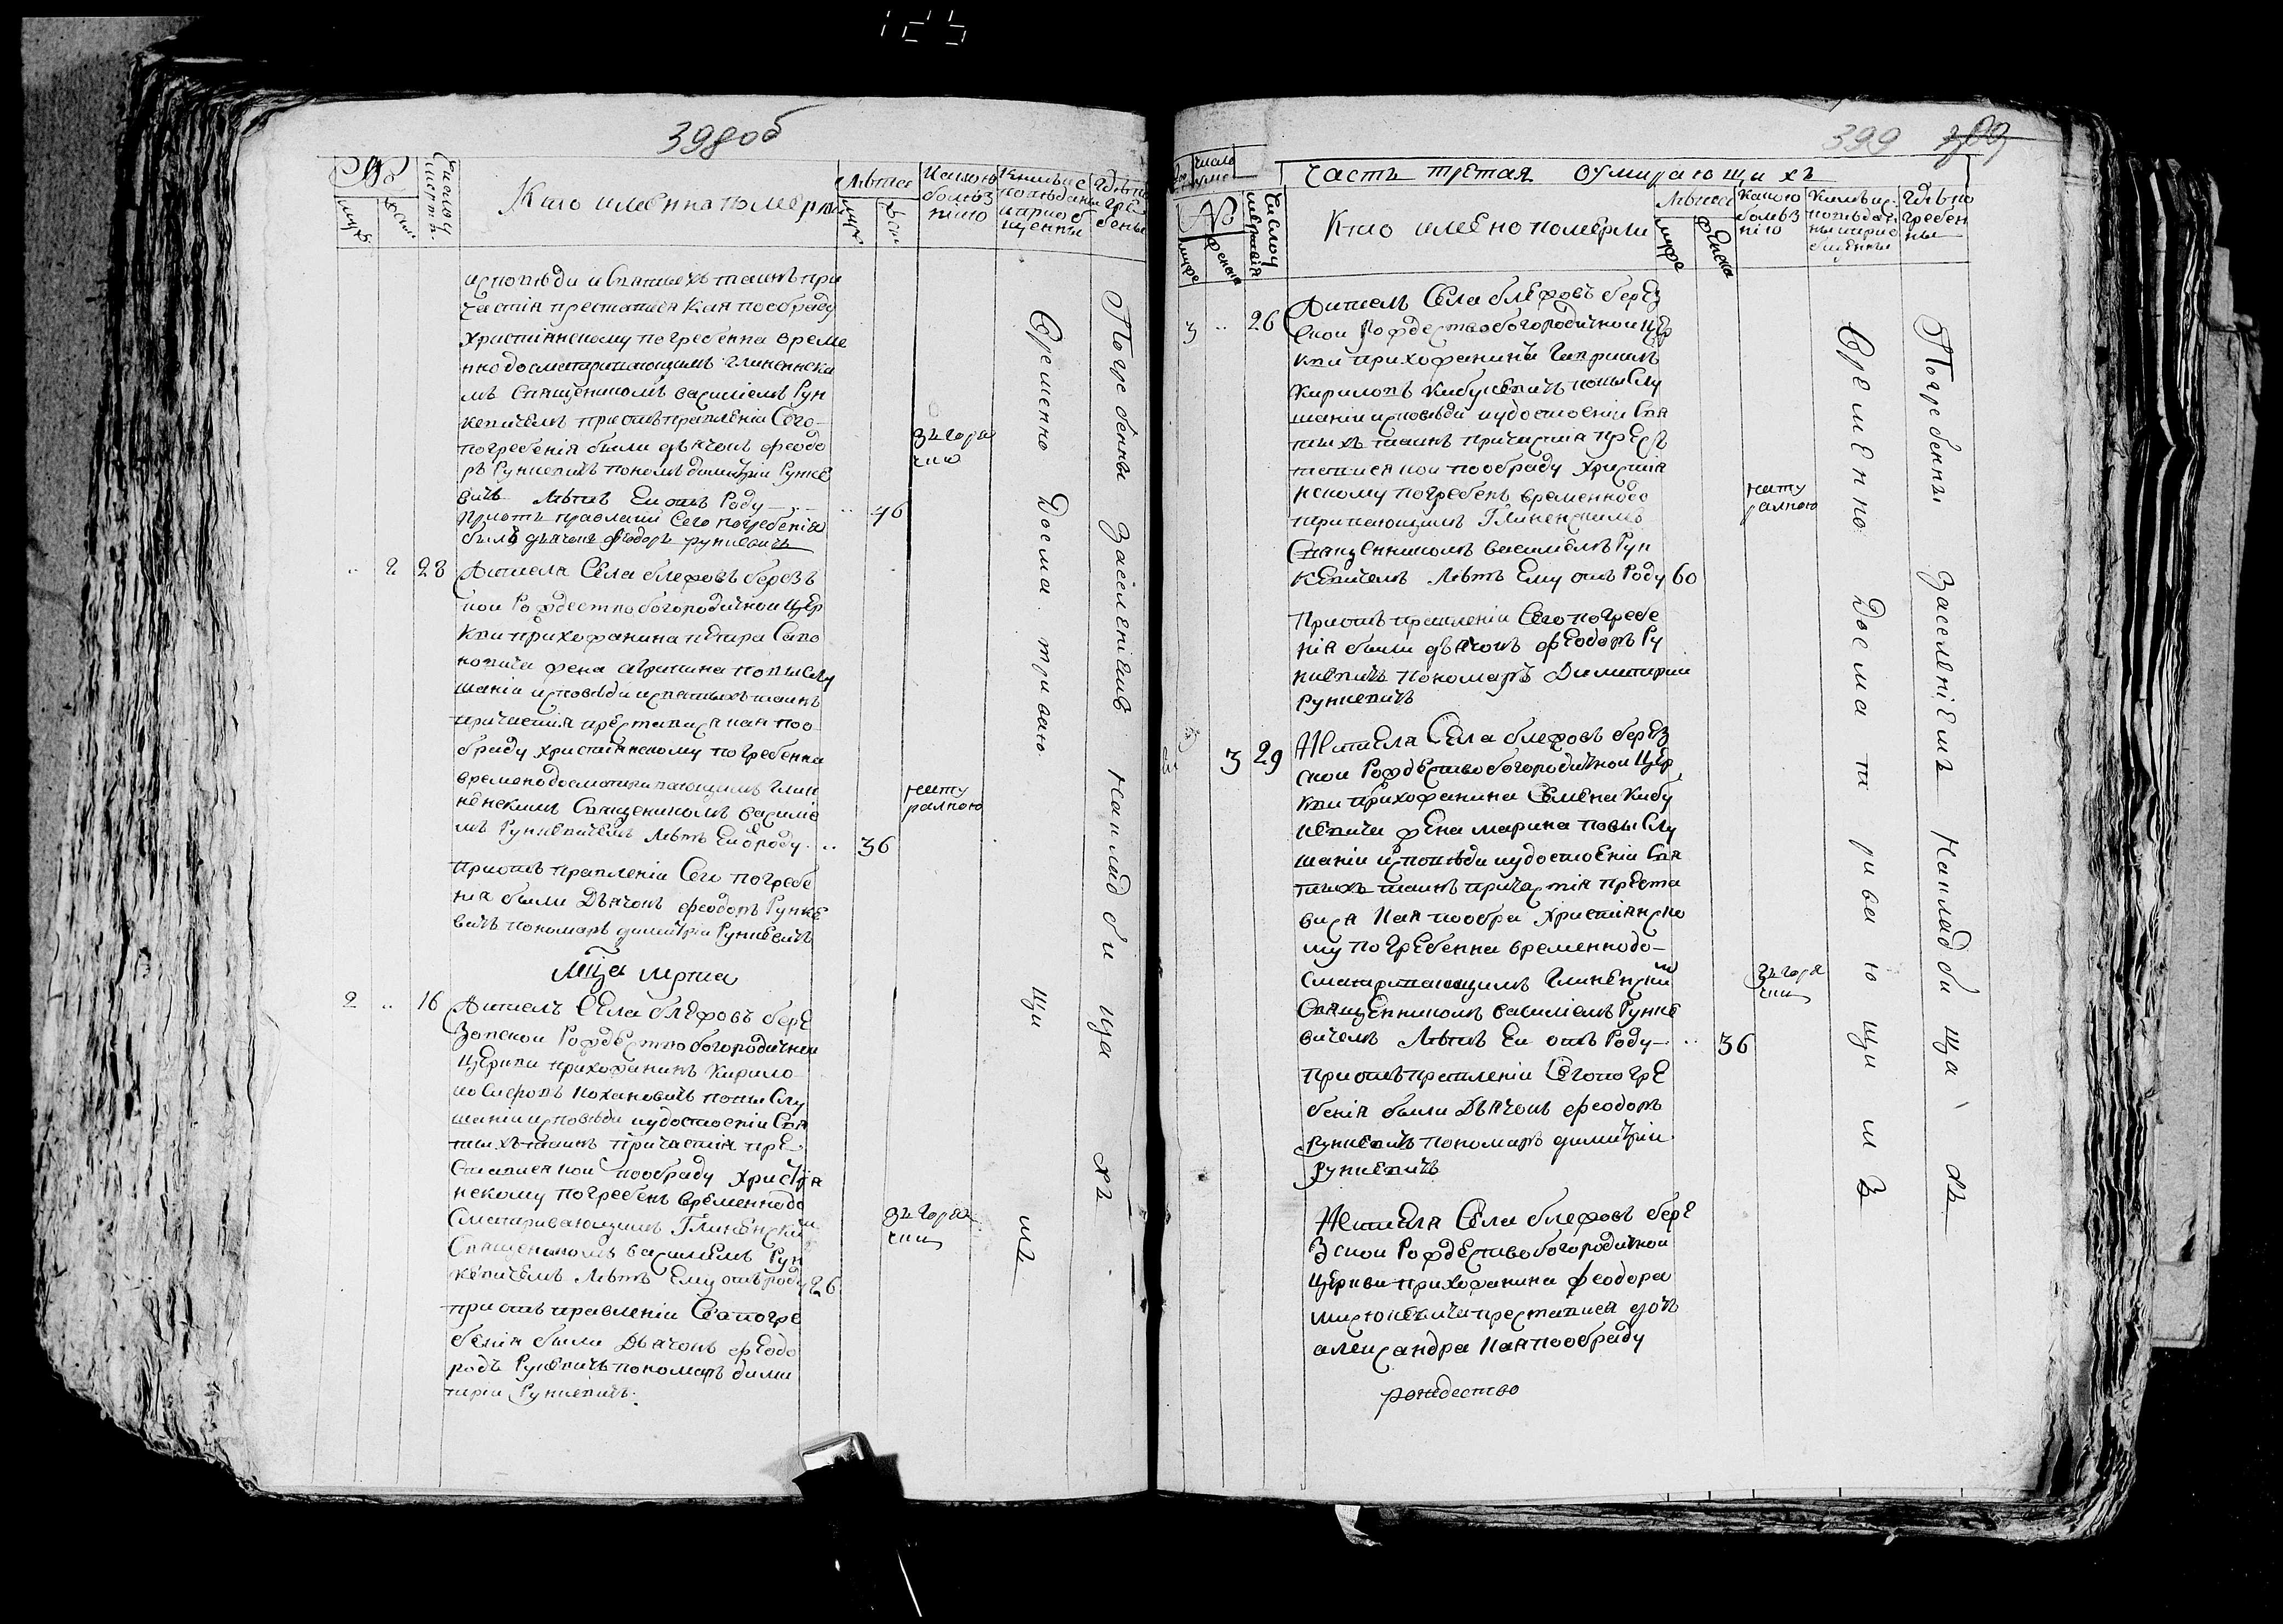 398об
№
муж.
жен.
Число у
мерт.
Кто именно померли
Лѣта
муж
жен
Какою
болѣз
нію
Кемъ ис
повѣдани
и приоб
щенны
Гдѣ по
гре
бены
исповѣди и святыхъ таинъ при
частія преставися коя по обряду
Христіянскому погребенна време
нно досматривающимъ глиненски
мъ священикомъ василіемъ Рун
кевичемъ при отправленіи Сего
погребенія были дьячокъ феодо
ръ Рункевичъ поном. димитрій Рунке
вичъ лѣтъ Ей отъ Роду 46
При отправленіи Сего погребенія
былъ дьячокъ феодоръ рункевичъ
З горя
чки
2 28 Жителя Села блежовъ березъ
кои Рождество богородичной Цер
кви прихожанина
жена агрипина по выслу
шаніи исповѣди и святыхъ таинъ
причастія преставися коя по о
бряду христіянскому погребенна
времено досматривающимъ глин
ненскимъ Священикомъ василіе
мъ Рункевичемъ лѣтъ Ей ѿ роду 36
При отправленіи Сего погребе
нія были Дьячокъ феодоръ Рунке
вичъ пономаръ димитрій Рункевичъ
Мца марта
2 16 Житель Села блежовъ бере
зовской Рождество богородичной
Церкви прихожанинъ Кирило
Кохановичъ по выслу
шаніи исповѣди и удостоеніи Свя
тыхъ таинъ причастія пре
ставися кой по обряду христія
нскому погребенъ временно до
сматривающимъ Глиненским
Священикомъ василіемъ Рун
кевичемъ лѣтъ Ему отъ роду 26
З горя
чки
при отправленіи Сего погре
бенія были Дьячокъ феодо
ръ Рункевичъ пономаръ дими
трій Рункевичъ.
Временно Досматривающимъ
Погребенны Заселеніемъ На кладбищахъ
399 399
Часть третая оумирающихъ
№
муже
женска
Число у
мершія
Кто имено померли
Лѣта
муже
женска
Какою
болѣз
нію
Кемъ ис
повѣда
ны и приоб
щенны
Гдѣ по
гребен
ны
3 26 Житель Села блежовъ берез
ской Рождество богородичной Цер
кви прихожанинъ Гавриилъ
Кириловъ Кибукевичъ по выслу
шаніи исповѣди и удостоеніи Свя
тыхъ таинъ причастія прест
тавися кой по обряду христія
нскому погребенъ временно до
тривающимъ Глиненскимъ
Священникомъ василіемъ Рун
кевичемъ лѣтъ Ему отъ Роду 60
При отправленіи Сего погребе
нія были дьячокъ феодоръ Ру
нкевичъ пономаръ Димитрій
Рункевичъ
3 29 Жителя Села блежовъ берез
ской Рождество богородичной Цер
кви прихожанина Семена Кибу
кевича жена марина по выслу
шаніи исповѣди и удостоеніи Свя
тыхъ таинъ причастія преста
вися коя по обря Христіянско
му погребенна временно до
сматривающимъ Глиненским
Священникомъ василіемъ Рунке
вичемъ лѣтъ Ей отъ Роду 36
З горя
чки
При отправленіи Сего погре
бенія были Дьячокъ феодоръ
Рункевичъ пономаръ димитрій
Рункевичъ
Жителя Села блежовъ бере
зской Рождество богородичной
Церкви прихожанина феодора
преставися дочь
александра коя по обряду
рождество
Временно Досматривающимъ
Погребенны Заселеніемъ На кладбища хъ